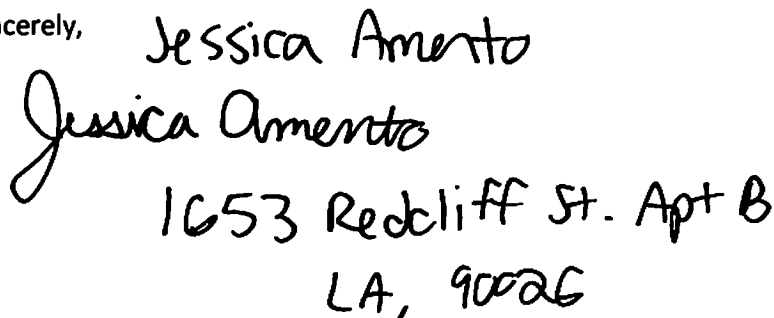 ncerely, Jessica Amento
Jessica Amento
1653 Redcliff St. Apt B
LA, 90026